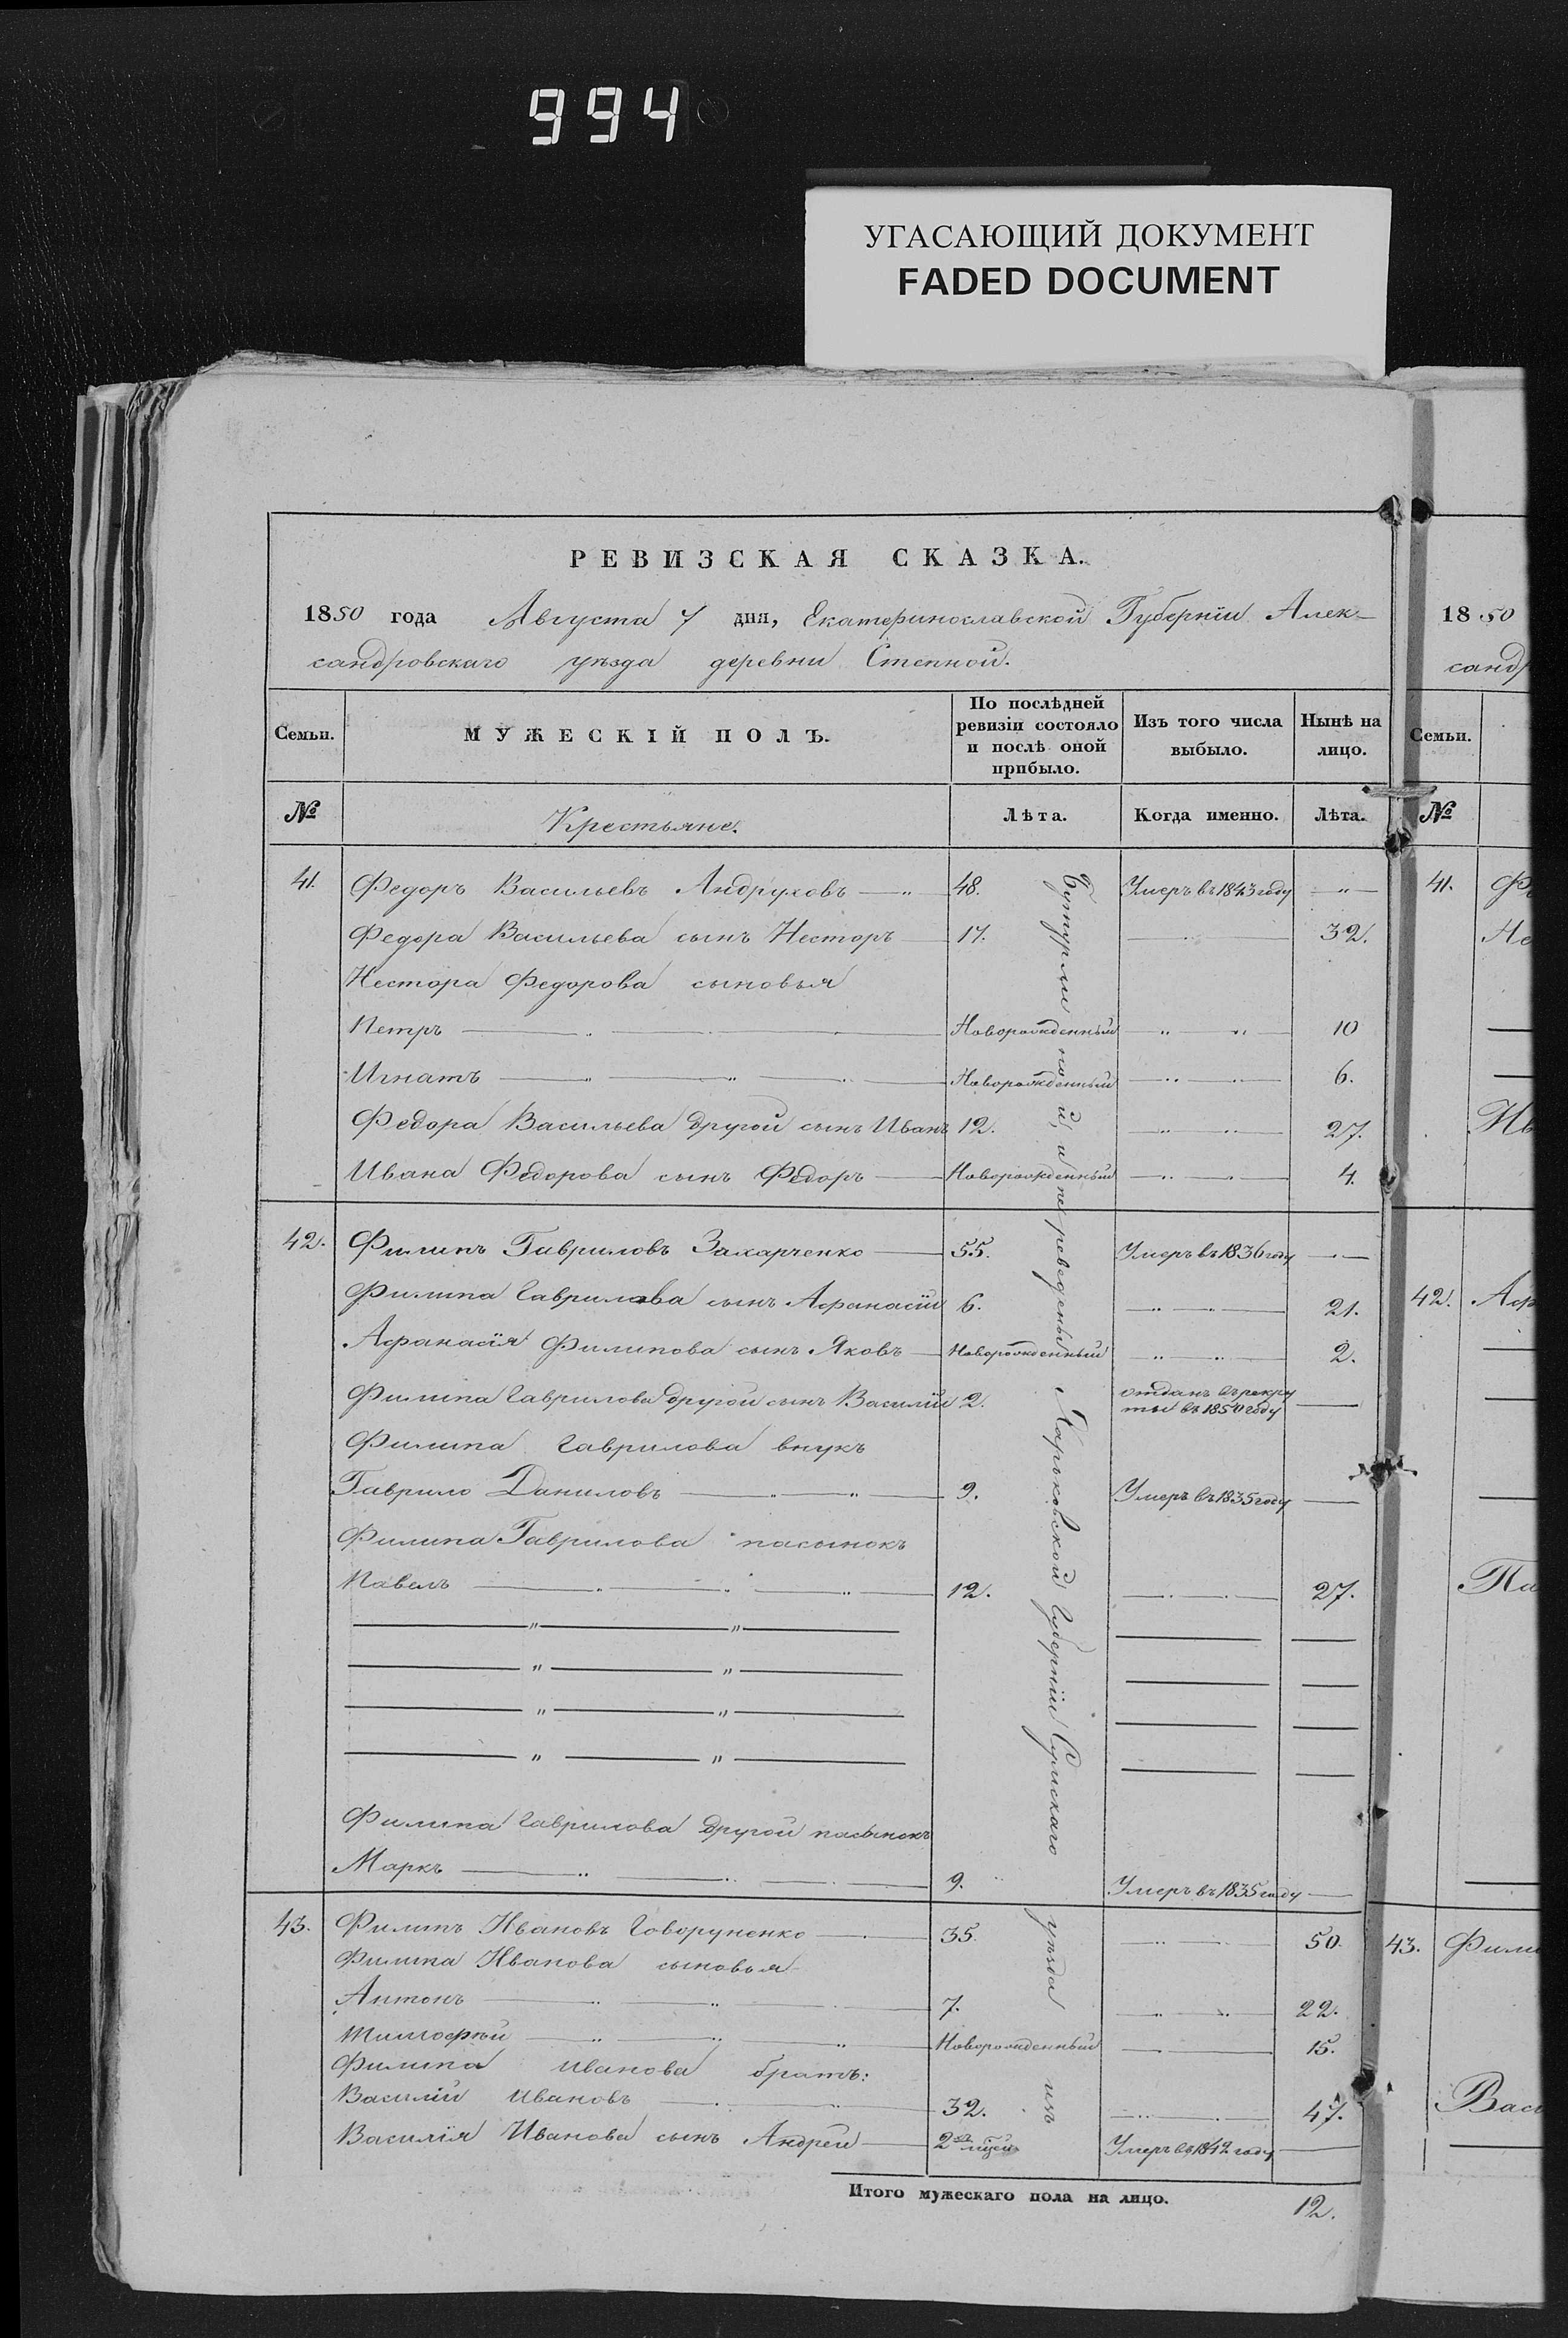 994
УГАСАЮЩИЙ ДОКУМЕНТ
FADED DOCUMENT
РЕВИЗСКАЯ СКАЗКА.
1850 года Августа 7 дня, Екатеринославской Губерніи Алек-
сандровскаго уѣзда деревни Степной.
Семьи. МУЖЕСКІЙ ПОЛЪ. По послѣдней ревизіи состояло и послѣ оной прибыло. Изъ того числа выбыло. Нынѣ на лицо.
№ Крестьяне. Лѣта. Когда именно. Лѣта.
41. Федоръ Васильевъ Андруховъ 48. Умеръ въ 1843 году
Федора Васильева сынъ Несторъ 17. 32.
Нестора Федорова сыновья
Петръ Новорожденный 10
Игнатъ Новорожденный 6.
Федора Васильева другой сынъ Иванъ 12. 27.
Ивана Федорова сынъ Федоръ Новорожденный 4.
42. Филипъ Гавриловъ Захарченко 55. Умеръ въ 1836 году
Филипа Гаврилова сынъ Афанасій 6. 21.
Афанасія Филипова сынъ Яковъ Новорожденный 2.
Филипа Гаврилова другой сынъ Василій 2. отданъ въ рекру
ты въ 1850 году
Филипа Гаврилова внукъ
Гаврило Даниловъ 9. Умеръ въ 1835 году
Филипа Гаврилова пасынокъ
Павелъ 12. 27.
Филипа Гаврилова другой пасынокъ
Маркъ 9. Умеръ въ 1835 году
43. Филипъ Ивановъ Говоруненко 35. 50.
Филипа Иванова сыновья
Антонъ 7. 22.
Тимофѣй Новорожденный 15.
Филипа Иванова братъ:
Василій Ивановъ 32. 47.
Василія Иванова сынъ Андрей 2 Умеръ въ 1842 году
Итого мужескаго пола на лицо. 12.
переведены Харьковской Губерніи Сумскаго уѣзда изъ
1850
санд
Семьи.
№
41. Ф
Не
Ив
42. Аф
Па
43. Фили
Васи